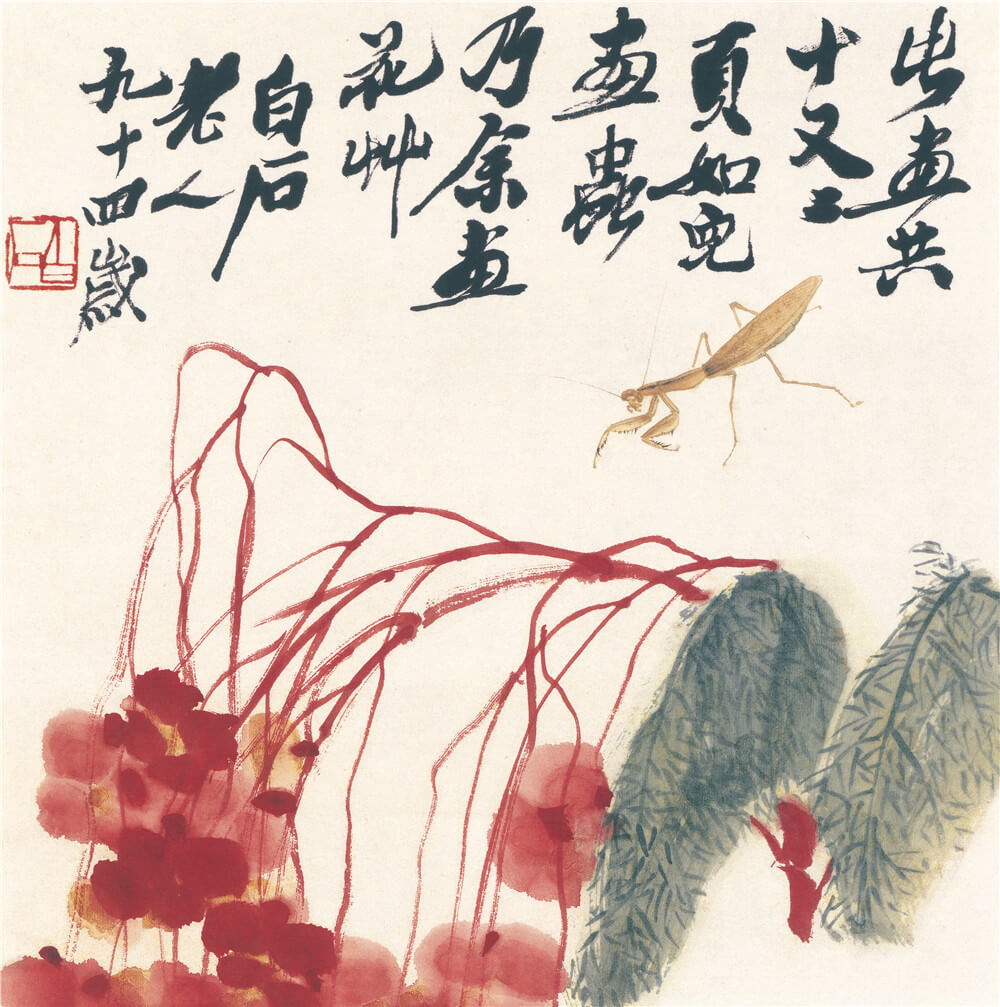 此畫共
十又二
頁如兒
畫蟲
乃余畫
花艸
白石
老人
九十四歲